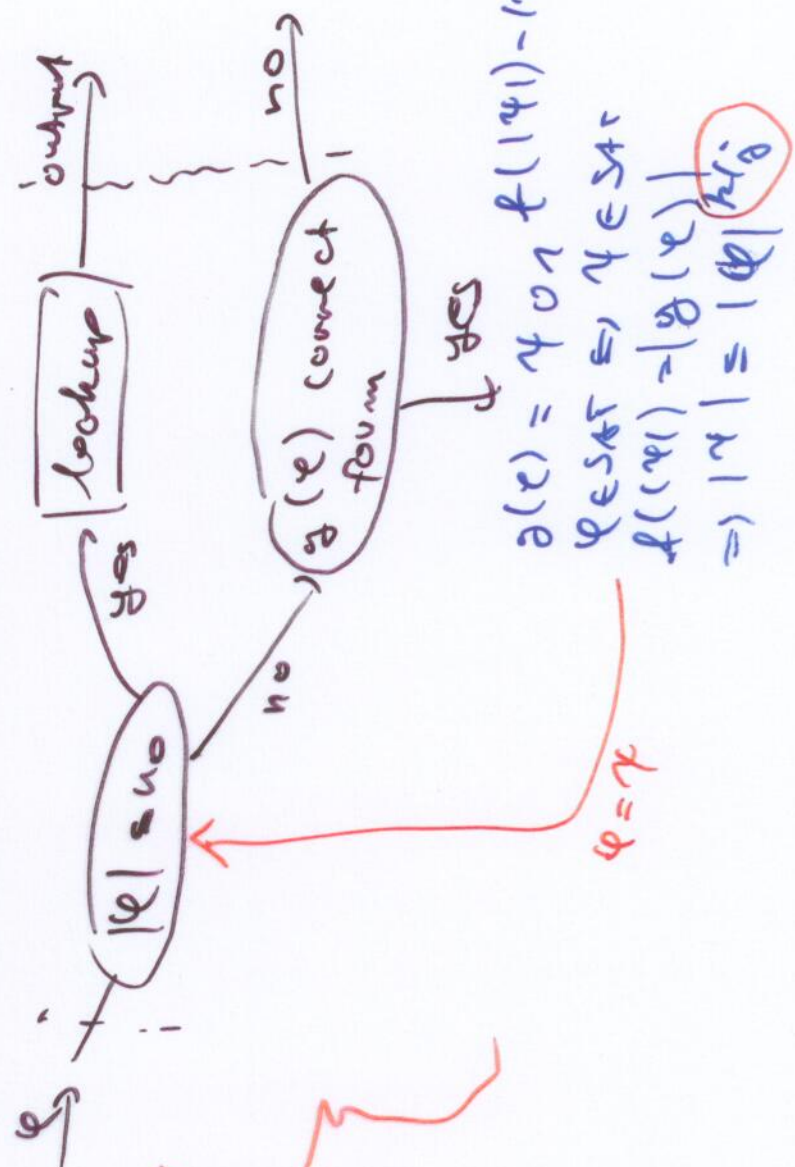 φ
|φ| ≤ n₀
yes
lookup
output
no
g(φ) correct
form
no
yes
g(φ) = ψ 0 1 f(|ψ|)-1
φ ∈ SAT ⇔ ψ ∈ SAT
f(|ψ|) ≤ |g(φ)|
⇒ |ψ| ≤ |φ|
φ = ψ